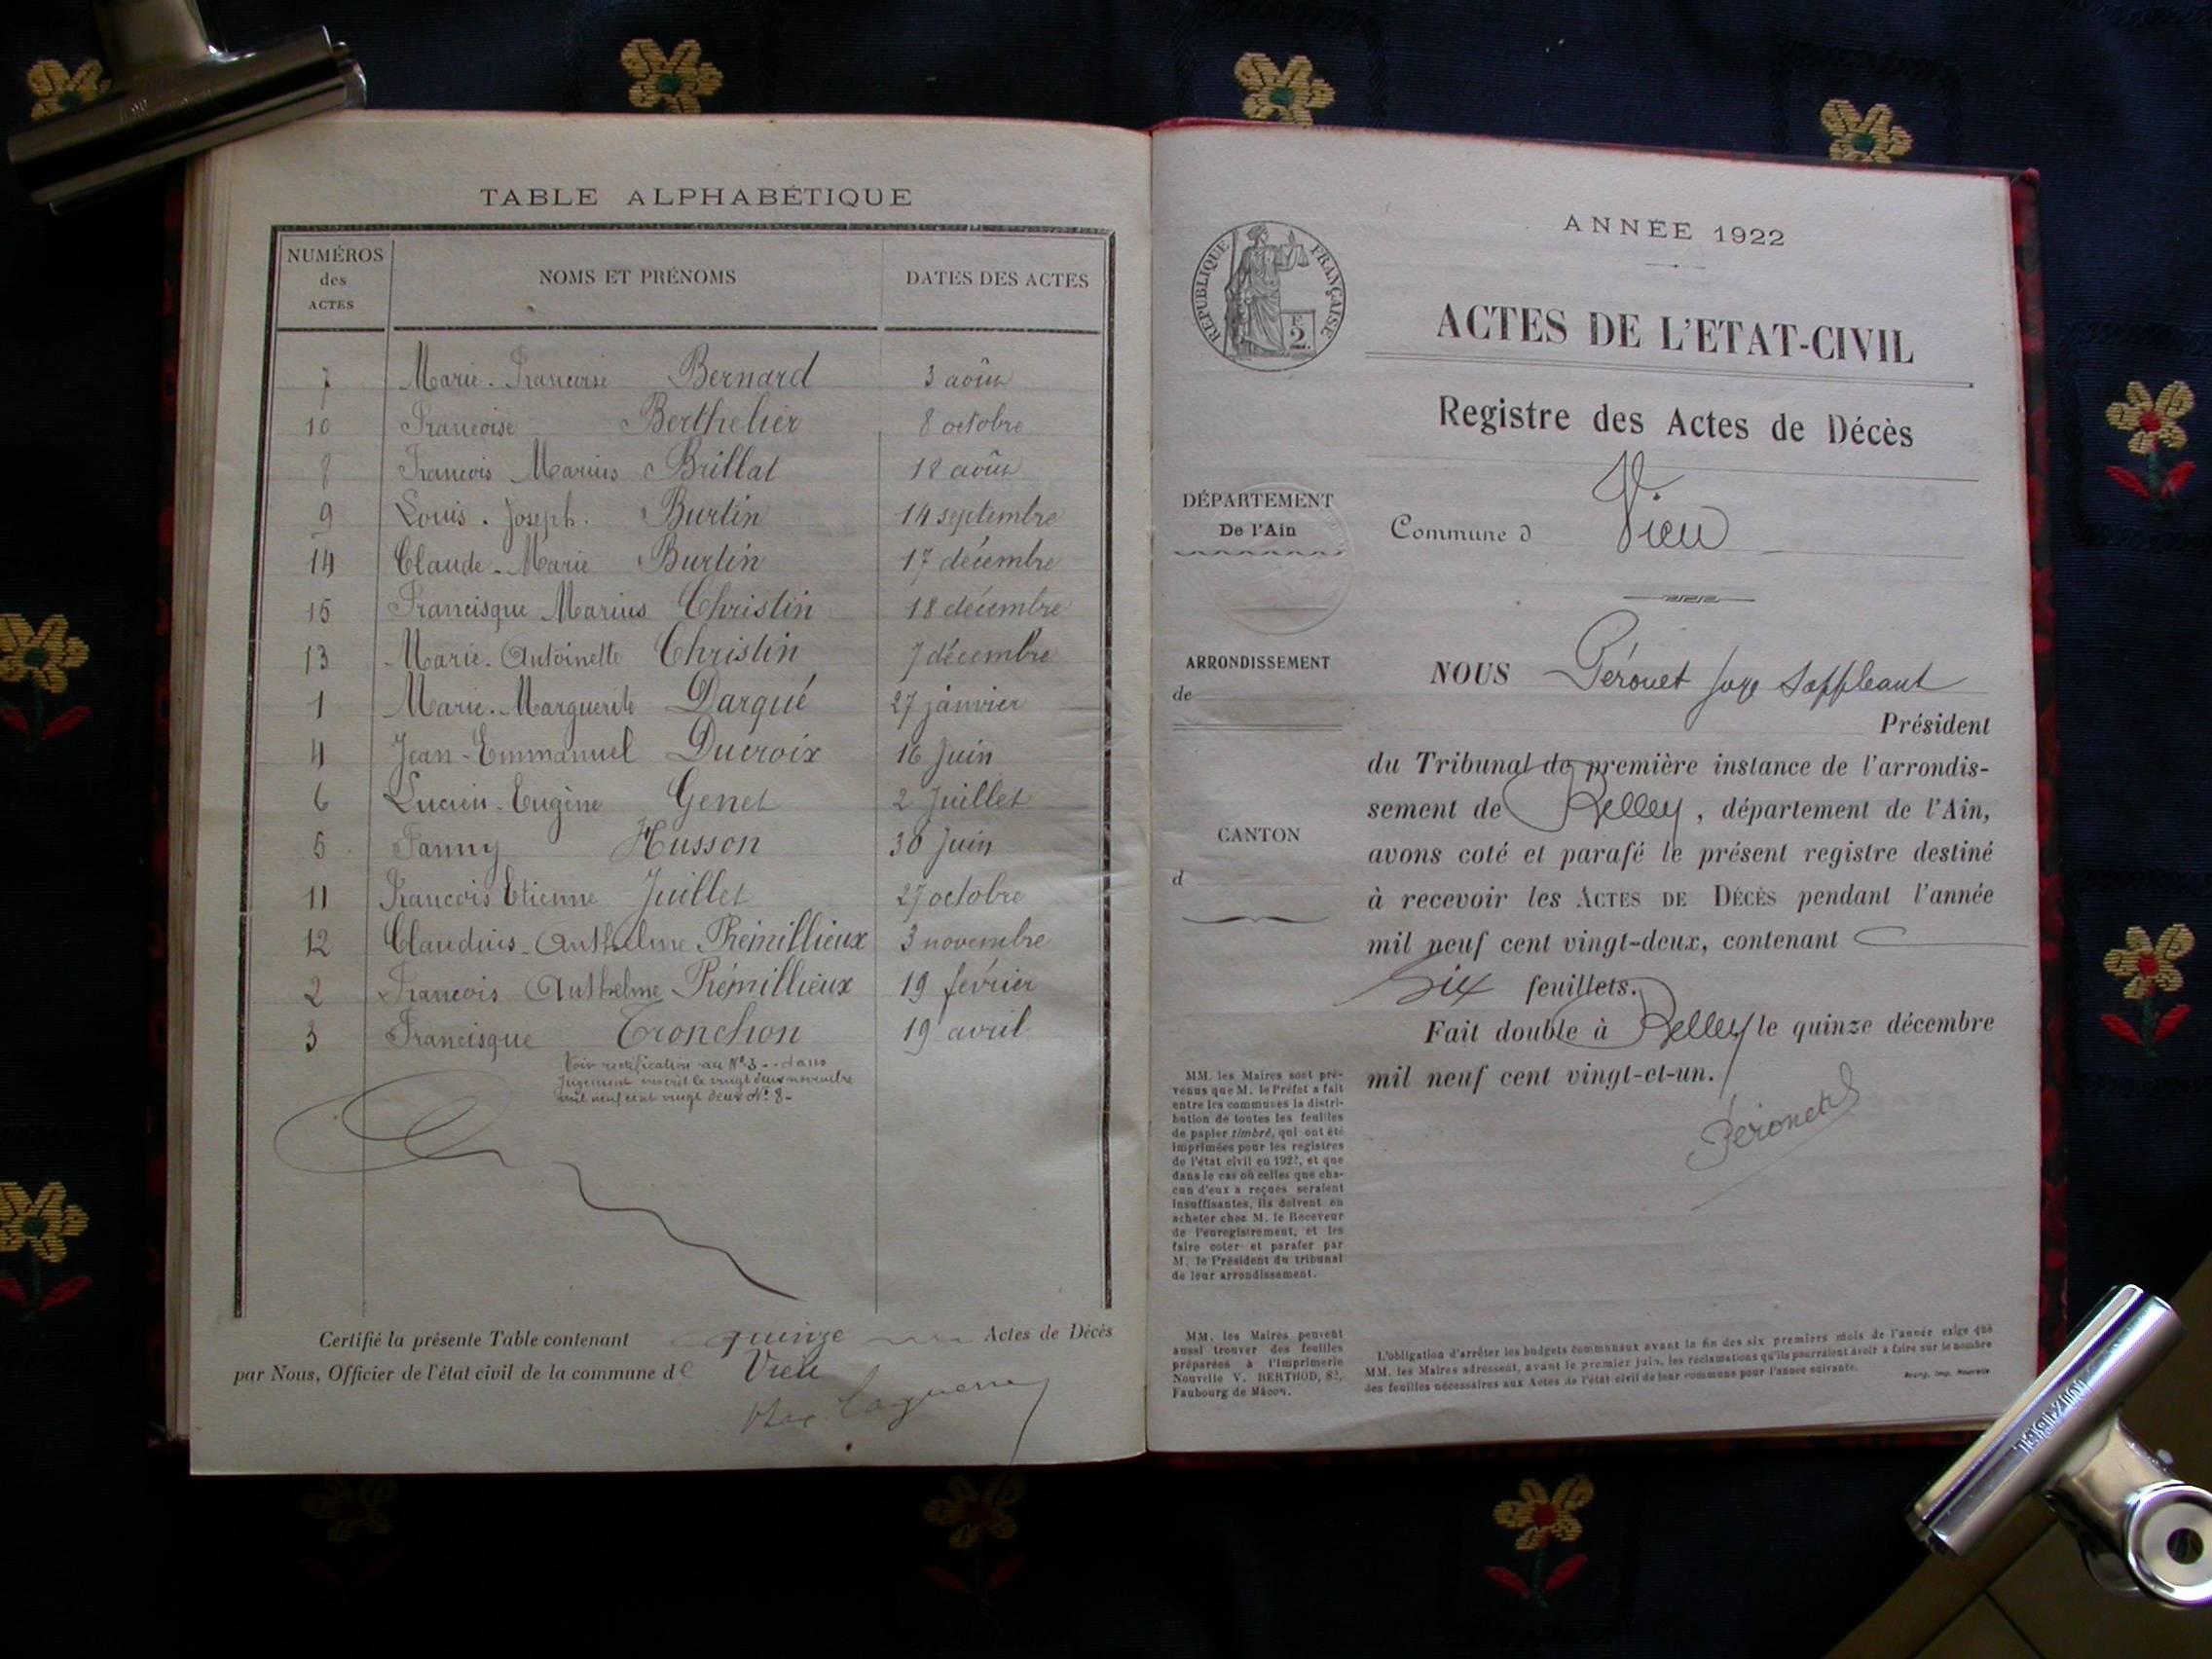 TABLE ALPHABÉTIQUE
NUMÉROS des ACTES NOMS ET PRÉNOMS DATES DES ACTES
7 Marie-Francoise Bernard 3 août
10 Francoise Berthelier 8 octobre
8 Francois Marius Brillat 18 août
9 Louis-Joseph. Burtin 14 septembre
14 Claude-Marie Burtin 17 décembre
15 Francisque Marius Christin 18 décembre
13 Marie-Antoinette Christin 7 décembre
1 Marie-Marguerite Darqué 27 janvier
4 Jean-Emmanuel Ducroix 16 Juin
6 Lucien-Eugène Genet 2 Juillet
5 Fanny Husson 30 Juin
11 Francois Etienne Juillet 27 octobre
12 Claudius-Anthelme Prémillieux 3 novembre
2 Francois Anthelme Prémillieux 19 février
3 Francisque Tronchon 19 avril
Voir rectification au N° 3 -- dans
Jugement inscrit le vingt deux novembre
mil neuf cent vingt deux N° 8-
Certifié la présente Table contenant quinze Actes de Décès
par Nous, Officier de l'état civil de la commune de Vieu
ANNÉE 1922
RÉPUBLIQUE FRANÇAISE
F. 2.
ACTES DE L'ETAT-CIVIL
Registre des Actes de Décès
DÉPARTEMENT
De l'Ain
Commune d Vieu
ARRONDISSEMENT
de
CANTON
d
NOUS Péronet Juge Suppléant
Président
du Tribunal de première instance de l'arrondis-
sement de Belley, département de l'Ain,
avons coté et parafé le présent registre destiné
à recevoir les ACTES DE DÉCÈS pendant l'année
mil neuf cent vingt-deux, contenant
Six feuillets.
Fait double à Belley le quinze décembre
mil neuf cent vingt-et-un.
Péronet
MM. les Maires sont pré-
venus que M. le Préfet a fait
entre les communes la distri-
bution de toutes les feuilles
de papier timbré, qui ont été
imprimées pour les registres
de l'état civil en 1922, et que
dans le cas où celles que cha-
cun d'eux a reçues seraient
insuffisantes, ils doivent en
acheter chez M. le Receveur
de l'enregistrement, et les
faire coter et parafer par
M. le Président du tribunal
de leur arrondissement.
MM. les Maires peuvent
aussi trouver des feuilles
préparées à l'Imprimerie
Nouvelle V. BERTHOD, 82,
Faubourg de Mâcon.
L'obligation d'arrêter les budgets communaux avant la fin des six premiers mois de l'année exige que
MM. les Maires adressent, avant le premier juin, les réclamations qu'ils pourraient avoir à faire sur le nombre
des feuilles nécessaires aux Actes de l'état-civil de leur commune pour l'année suivante.
Bourg, Imp. Nouvelle